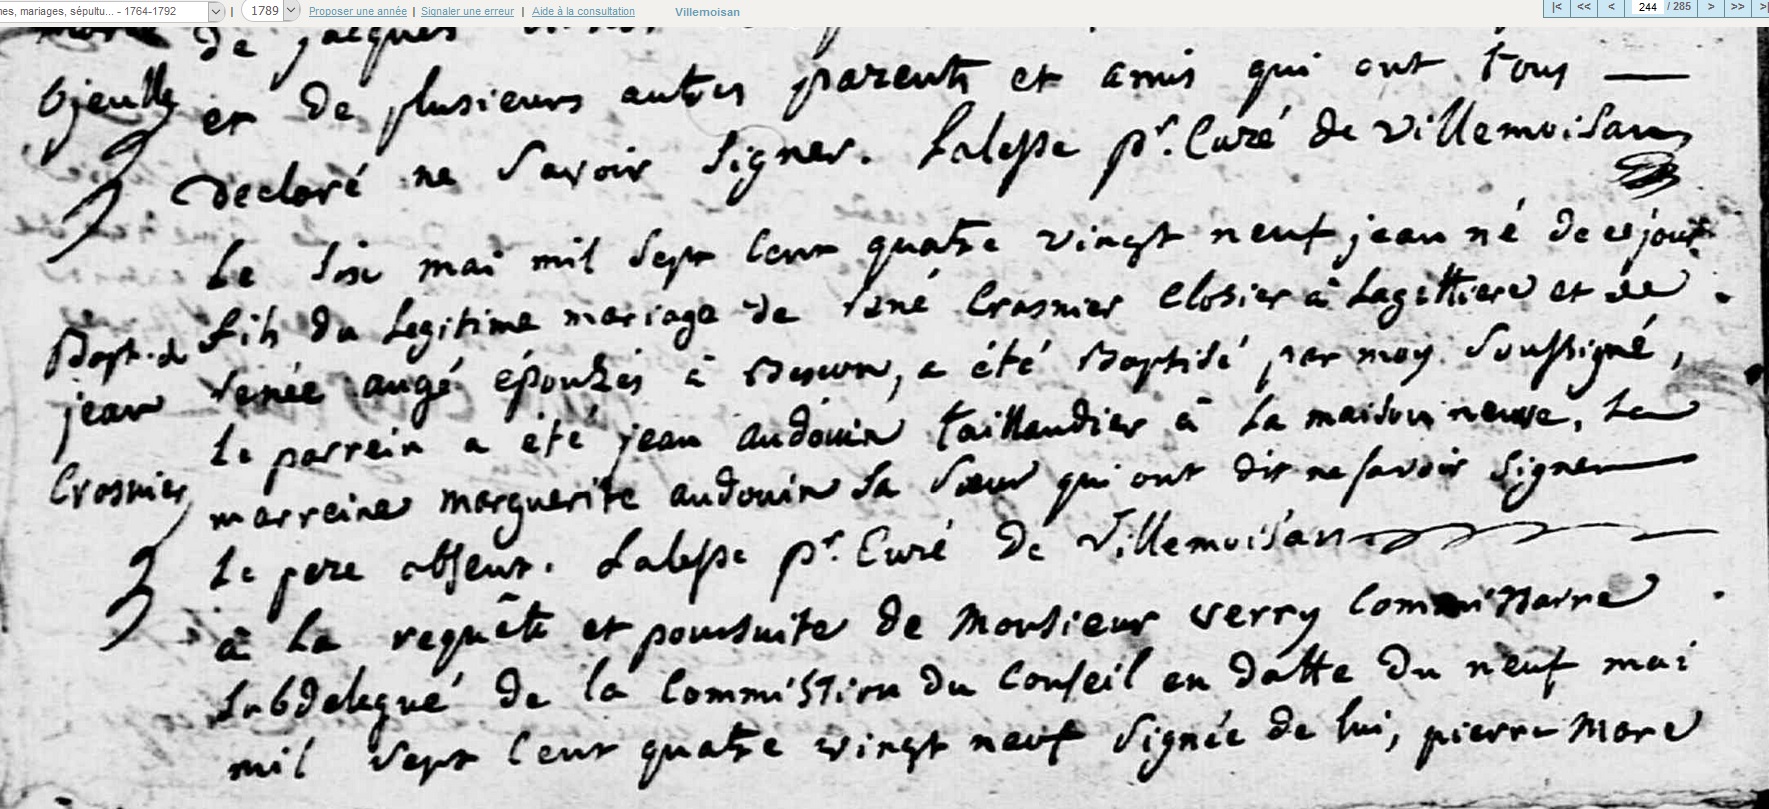 mes, mariages, sépultu... - 1764-1792 | 1789 Proposer une année | Signaler une erreur | Aide à la consultation Villemoisan |< << < 244 / 285 > >> >|
de jacques
et de plusieurs autres parents et amis qui ont tous
declaré ne savoir signer. Lalesse pr. Curé de villemoisan
Bapt. de
jean
Crosnier
Le six mai mil sept cent quatre vingt neuf jean né de ce jour
fils du Legitime mariage de rené Crosnier Closier à Lagittiere et de
renée augé épousés à Becon, a été Baptisé par moy soussigné,
Le parrein a été jean audouin taillandier à La maison neuve, La
marreine marguerite audouin sa sœur qui ont dit ne savoir signer
Le pere absent. Lalesse pr. Curé de Villemoisan
à La requête et poursuite de Monsieur verry Commissaire
subdelegué de la Commission du Conseil en datte du neuf mai
mil sept cent quatre vingt neuf signée de lui, pierre More